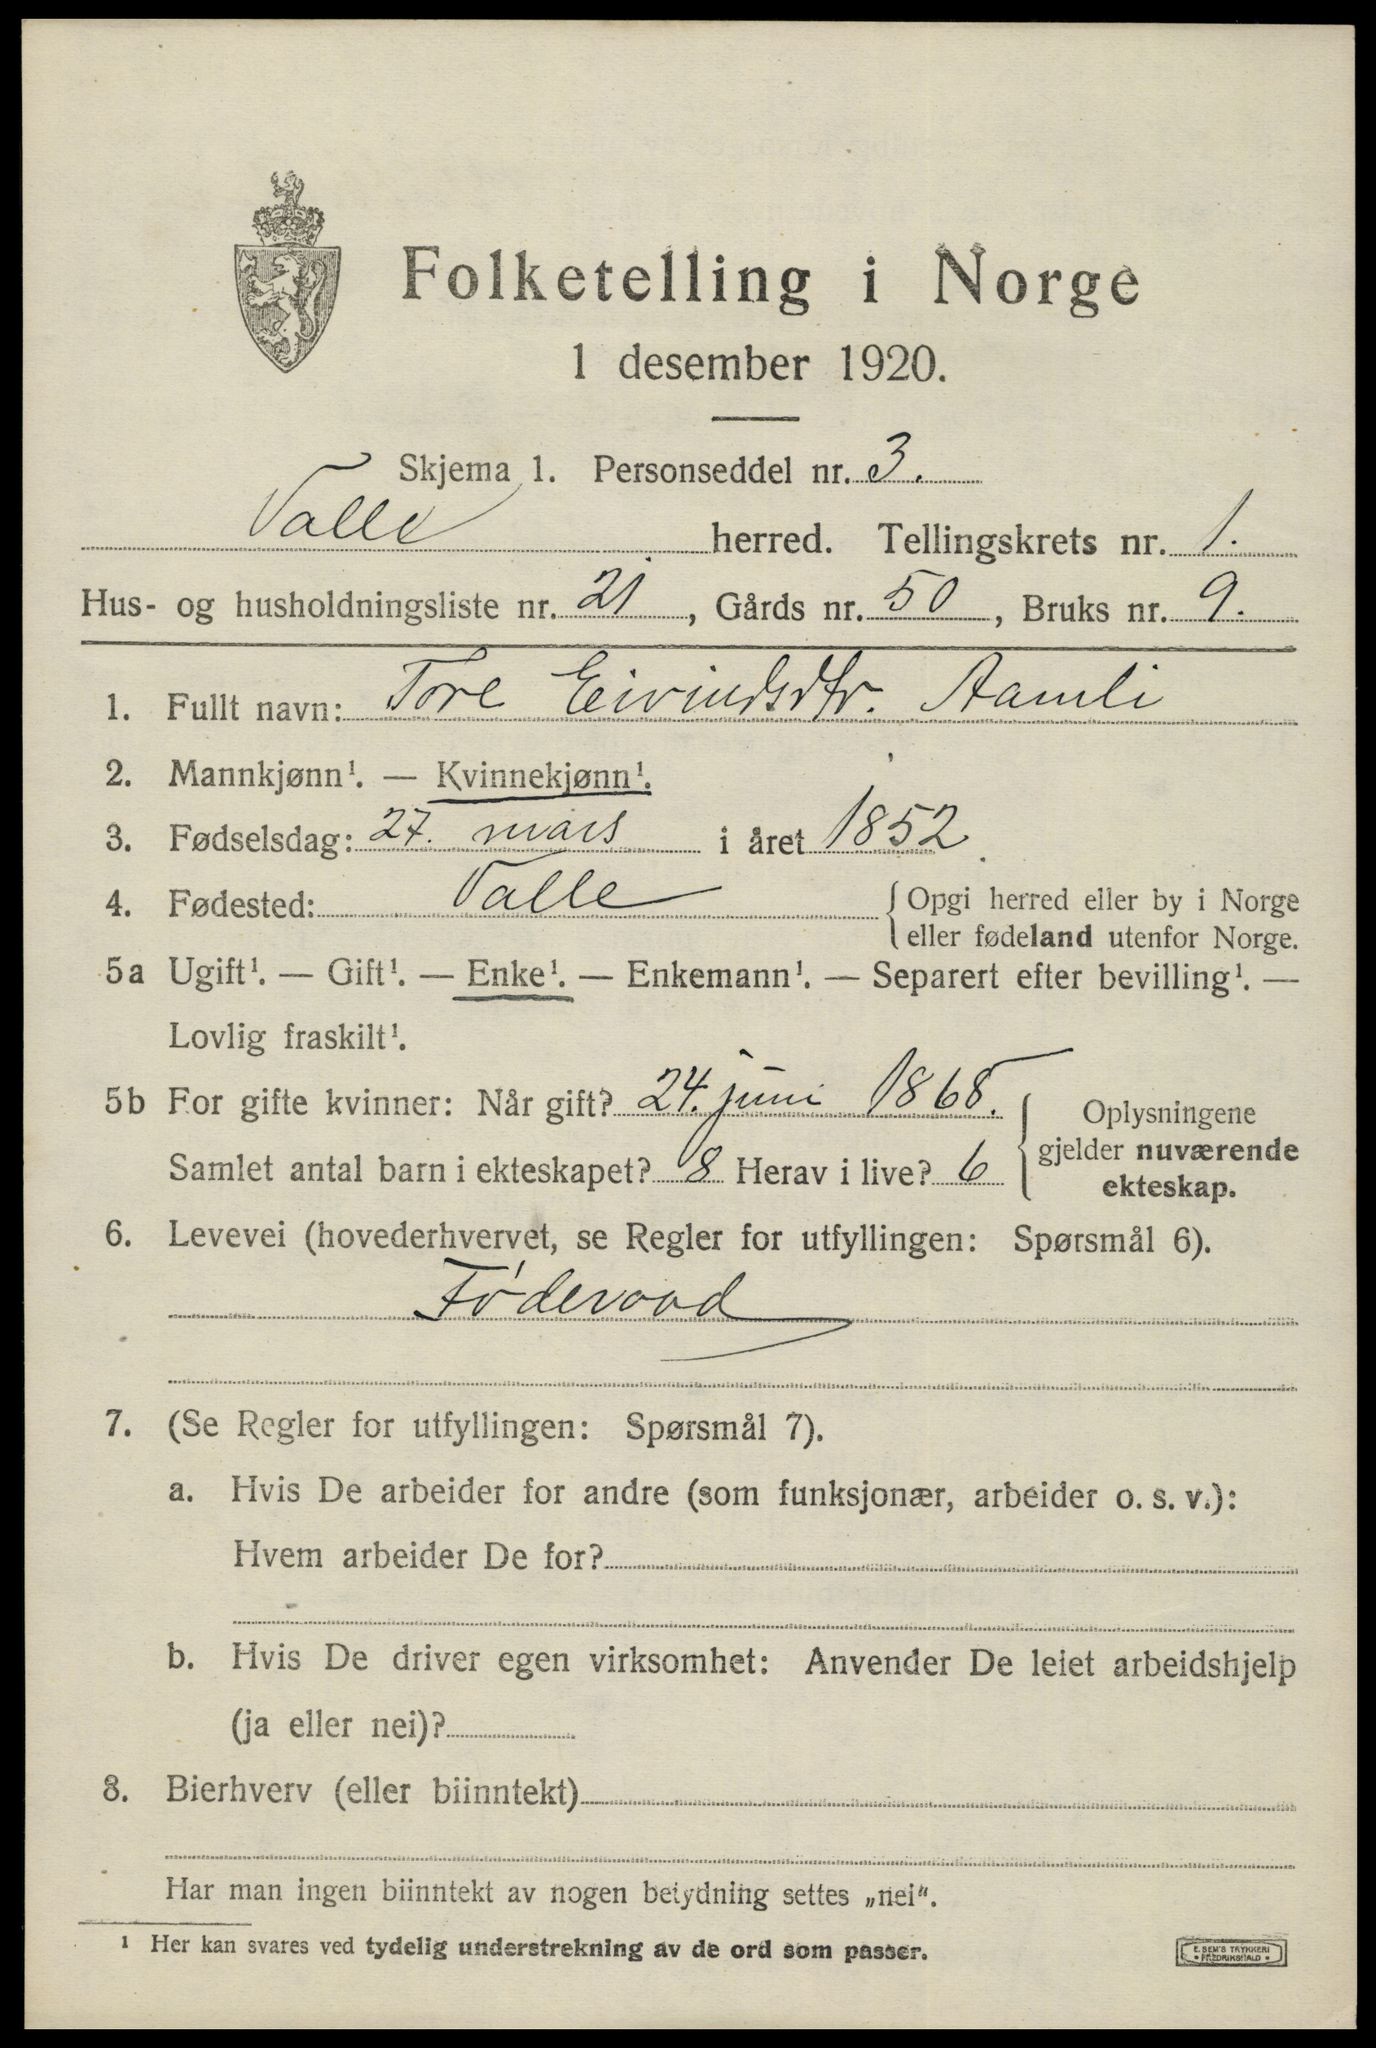 Folketelling i Norge
1 desember 1920.
Skjema 1. Personseddel nr. 3.
Valle herred. Tellingskrets nr. 1.
Hus- og husholdningsliste nr. 21, Gårds nr. 50, Bruks nr. 9.
1. Fullt navn: Tore Eivindsdtr. Aamli
2. Mannkjønn¹. — Kvinnekjønn¹.
3. Fødselsdag: 27. mars i året 1852.
4. Fødested: Valle { Opgi herred eller by i Norge
eller fødeland utenfor Norge.
5a Ugift¹. — Gift¹. — Enke¹. — Enkemann¹. — Separert efter bevilling¹. —
Lovlig fraskilt¹.
5b For gifte kvinner: Når gift? 24. juni 1868. { Oplysningene
gjelder nuværende
Samlet antal barn i ekteskapet? 8 Herav i live? 6
ekteskap.
6. Levevei (hovederhvervet, se Regler for utfyllingen: Spørsmål 6).
Föderaad
7. (Se Regler for utfyllingen: Spørsmål 7).
a. Hvis De arbeider for andre (som funksjonær, arbeider o. s. v.):
Hvem arbeider De for?
b. Hvis De driver egen virksomhet: Anvender De leiet arbeidshjelp
(ja eller nei)?
8. Bierhverv (eller biinntekt)
Har man ingen biinntekt av nogen betydning settes „nei“.
¹ Her kan svares ved tydelig understrekning av de ord som passer.
E. SEM'S TRYKKERI
• FREDRIKSHALD •